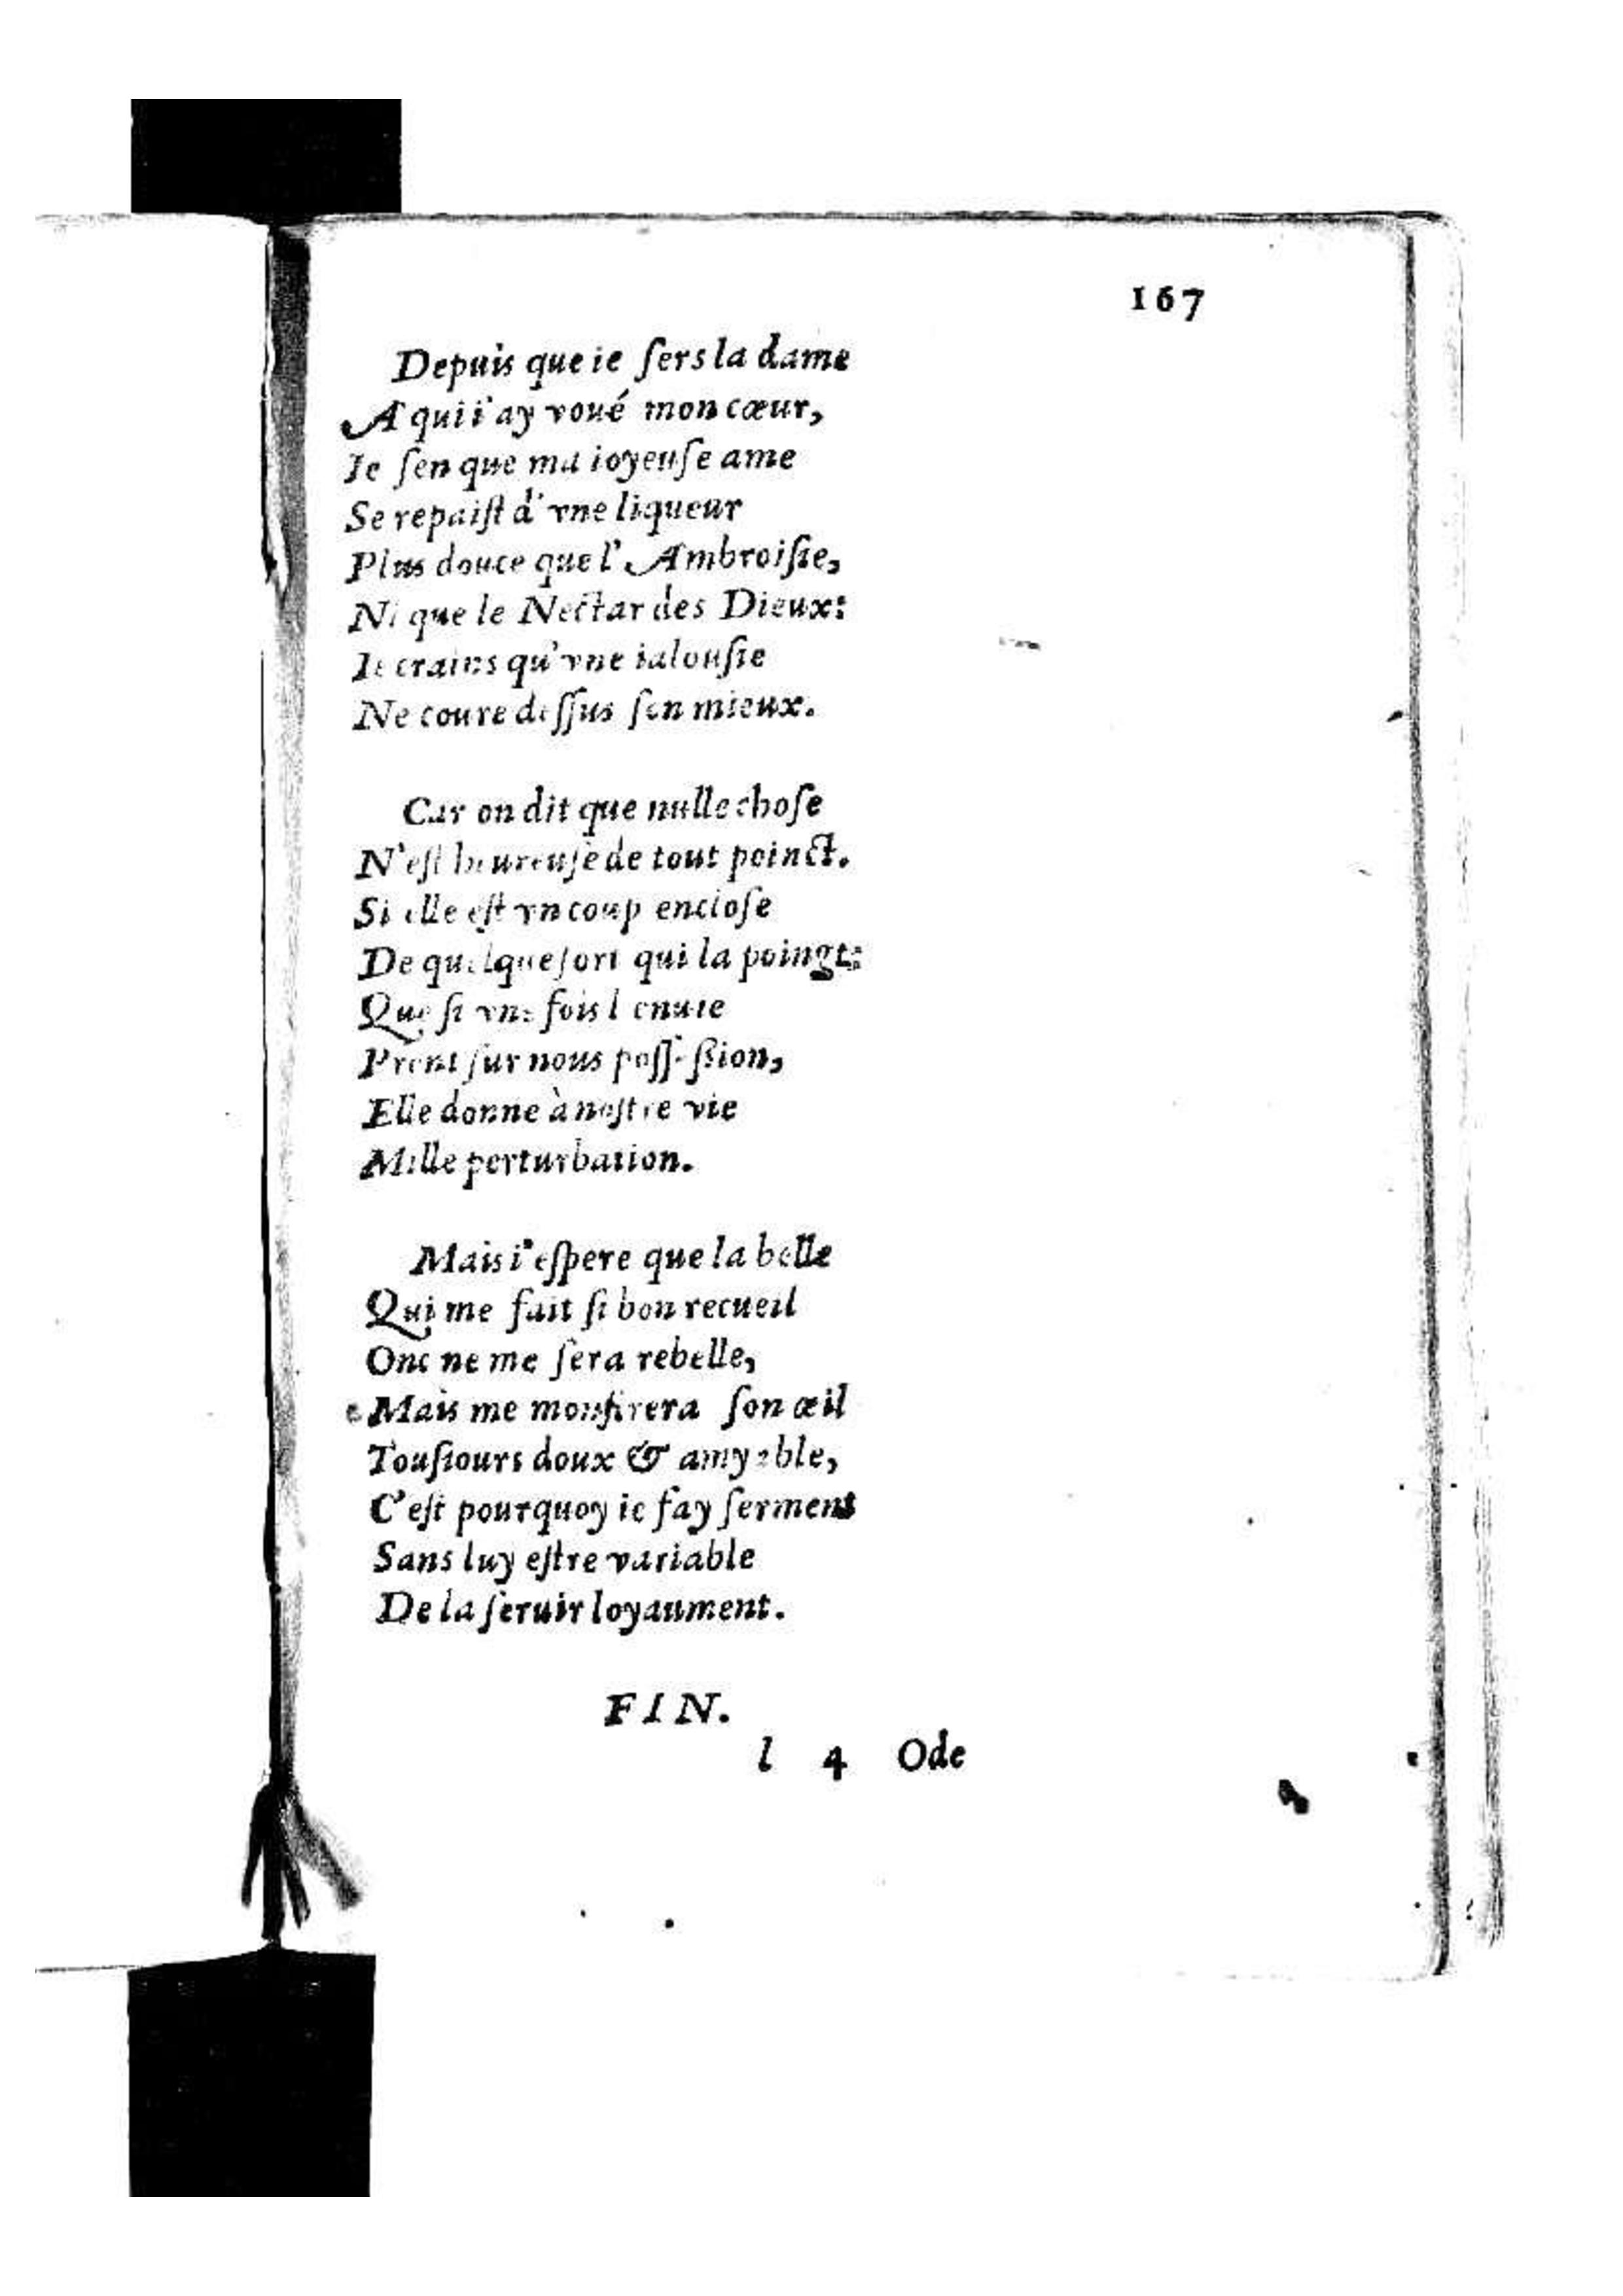 167
Depuis que ie ſers la dame
A qui i'ay voué mon cœur,
Ie ſen que ma ioyeuſe ame
Se repaiſt d'vne liqueur
Plus douce que l'Ambroiſie,
Ni que le Nectar des Dieux:
Ie crains qu'vne ialouſie
Ne coure deſſus ſon mieux.
Car on dit que nulle choſe
N'eſt heureuſe de tout poinct.
Si elle eſt vn coup encloſe
De quelque ſort qui la poingt:
Que ſi vne fois l'enuie
Prent ſur nous poſſeſsion,
Elle donne à noſtre vie
Mille perturbation.
Mais i'eſpere que la belle
Qui me fait ſi bon recueil
Onc ne me ſera rebelle,
Mais me monſtrera ſon œil
Touſiours doux & amyable,
C'eſt pourquoy ie fay ſerment
Sans luy eſtre variable
De la ſeruir loyaument.
FIN.
l 4 Ode